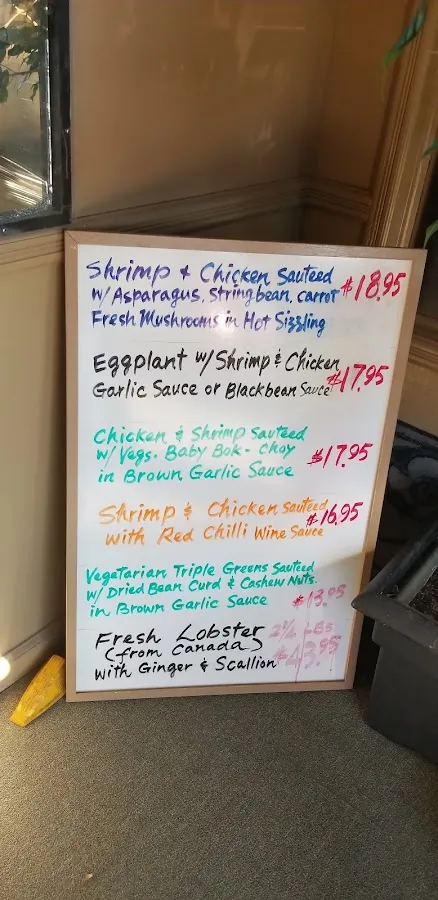 Shrimp & Chicken Sauteed
w/Asparagus, Stringbean, carrot $18.95
Fresh Mushrooms in Hot Sizzling
Eggplant w/Shrimp & Chicken
Garlic Sauce or Blackbean Sauce $17.95
Chicken & Shrimp Sauteed
w/ Vegs. Baby Bok-Choy
in Brown Garlic Sauce $17.95
Shrimp & Chicken Sauteed $16.95
with Red Chilli Wine Sauce
Vegetarian Triple Greens Sauteed
w/ Dried Bean Curd & Cashew Nuts.
in Brown Garlic Sauce $13.95
Fresh Lobster
(from Canada) $43.95
with Ginger & Scallion